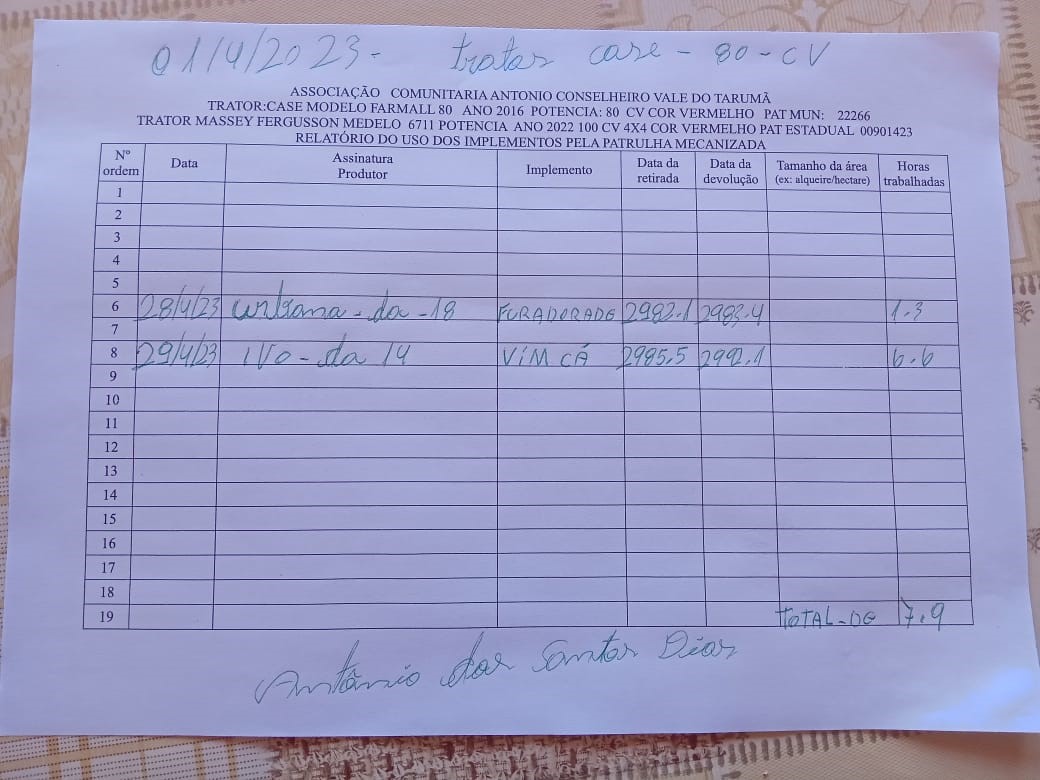 01/4/2023- trator case - 80 - CV
ASSOCIAÇÃO COMUNITARIA ANTONIO CONSELHEIRO VALE DO TARUMÃ
TRATOR:CASE MODELO FARMALL 80 ANO 2016 POTENCIA: 80 CV COR VERMELHO PAT MUN: 22266
TRATOR MASSEY FERGUSSON MEDELO 6711 POTENCIA ANO 2022 100 CV 4X4 COR VERMELHO PAT ESTADUAL 00901423
RELATÓRIO DO USO DOS IMPLEMENTOS PELA PATRULHA MECANIZADA
Nº ordem Data Assinatura Produtor Implemento Data da retirada Data da devolução Tamanho da área (ex: alqueire/hectare) Horas trabalhadas
1
2
3
4
5
6 28/4/23 - da - 18 2982.1 2983.4 1.3
7
8 29/4/23 IVO - da 14 VIM CÁ 2985.5 2992.1 6.6
9
10
11
12
13
14
15
16
17
18
19 TOTAL - DG 7.9
Antônio dos Santos Dias